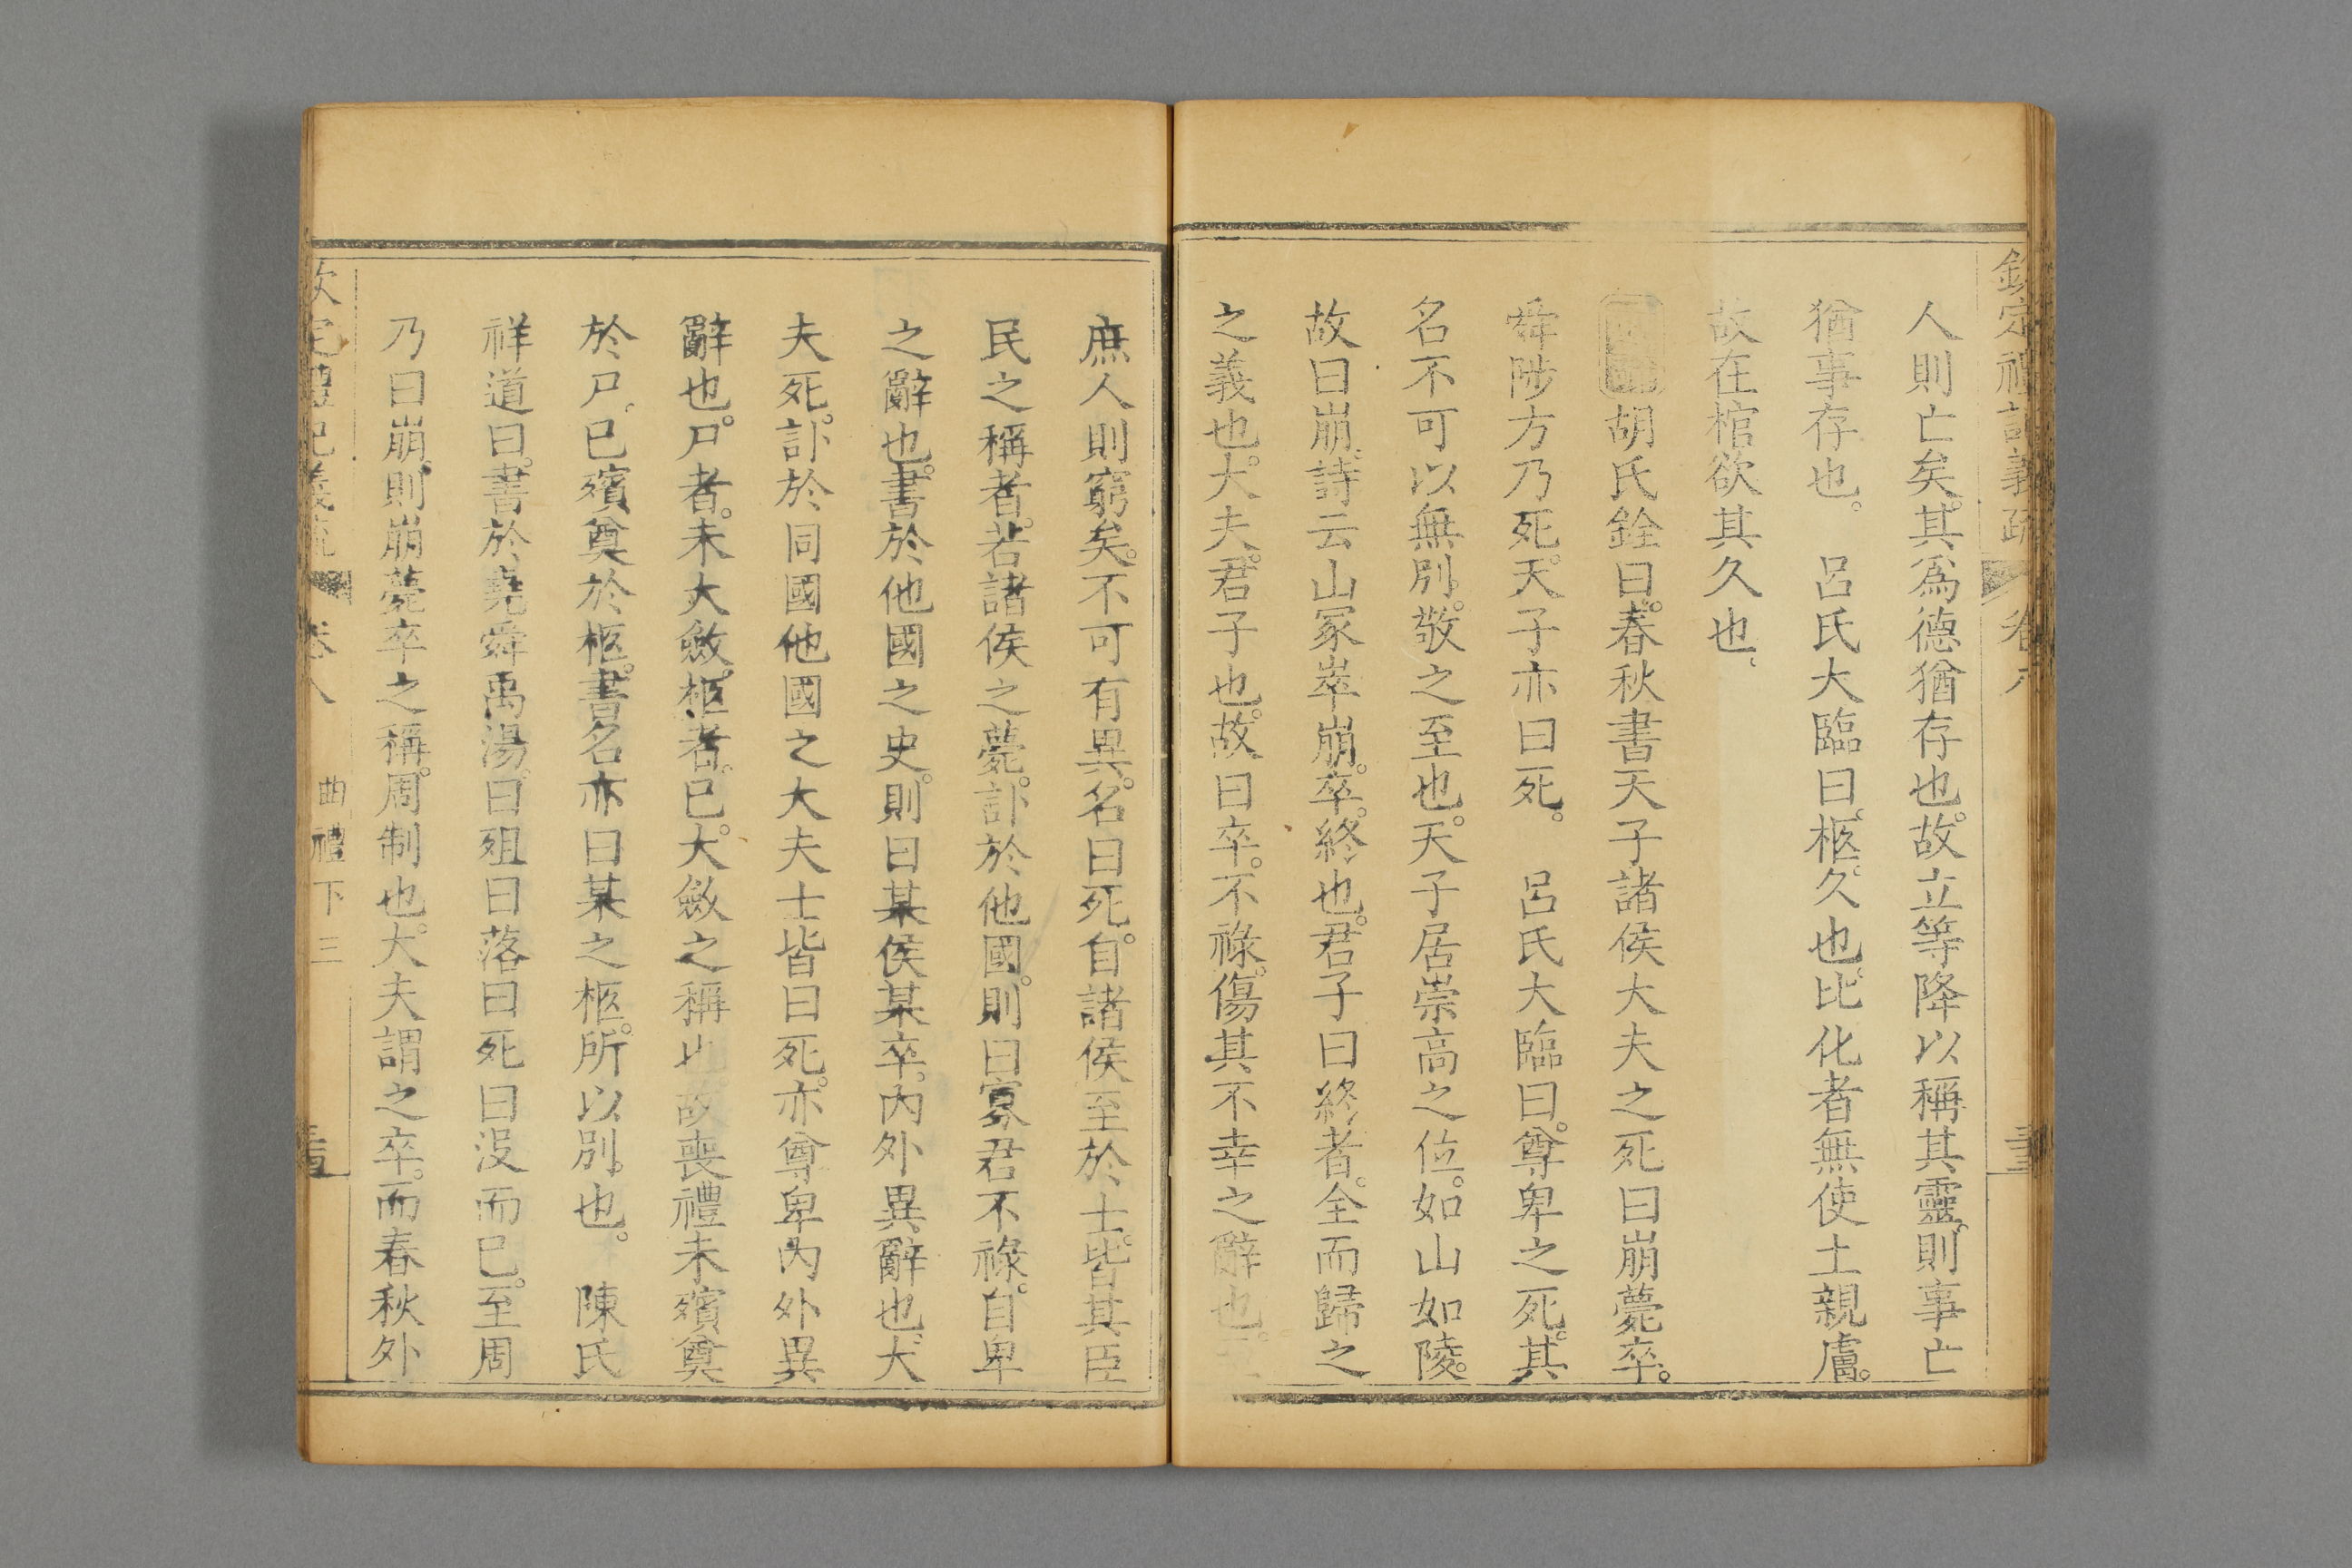 欽定禮記義疏 卷八
人則亡矣。其為德猶存也。故立等降以稱其靈。則事亡
猶事存也。 呂氏大臨曰。柩。久也。比化者無使土親膚。
故在棺欲其久也。
胡氏銓曰。春秋書天子諸侯大夫之死曰崩薨卒。
舜陟方乃死。天子亦曰死。 呂氏大臨曰。尊卑之死。其
名不可以無別。敬之至也。天子居崇高之位。如山如陵。
故曰崩。詩云山冢崒崩。卒。終也。君子曰終者。全而歸之
之義也。大夫。君子也。故曰卒。不祿。傷其不幸之辭也。
庶人則窮矣。不可有異。名曰死。自諸侯至於士。皆其臣
民之稱者。若諸侯之薨。訃於他國。則曰寡君不祿。自卑
之辭也。書於他國之史。則曰某侯某卒。內外異辭也。大
夫死。訃於同國他國之大夫士皆曰死。亦尊卑內外異
辭也。尸者。未大斂。柩者。已大斂之稱也。故喪禮未殯奠
於尸。已殯奠於柩。書名亦曰某之柩。所以別也。 陳氏
祥道曰。書於堯舜禹湯。曰殂曰落曰死曰沒而已。至周
乃曰崩。則崩薨卒之稱。周制也。大夫謂之卒。而春秋外
欽定禮記義疏 卷八 曲禮下三